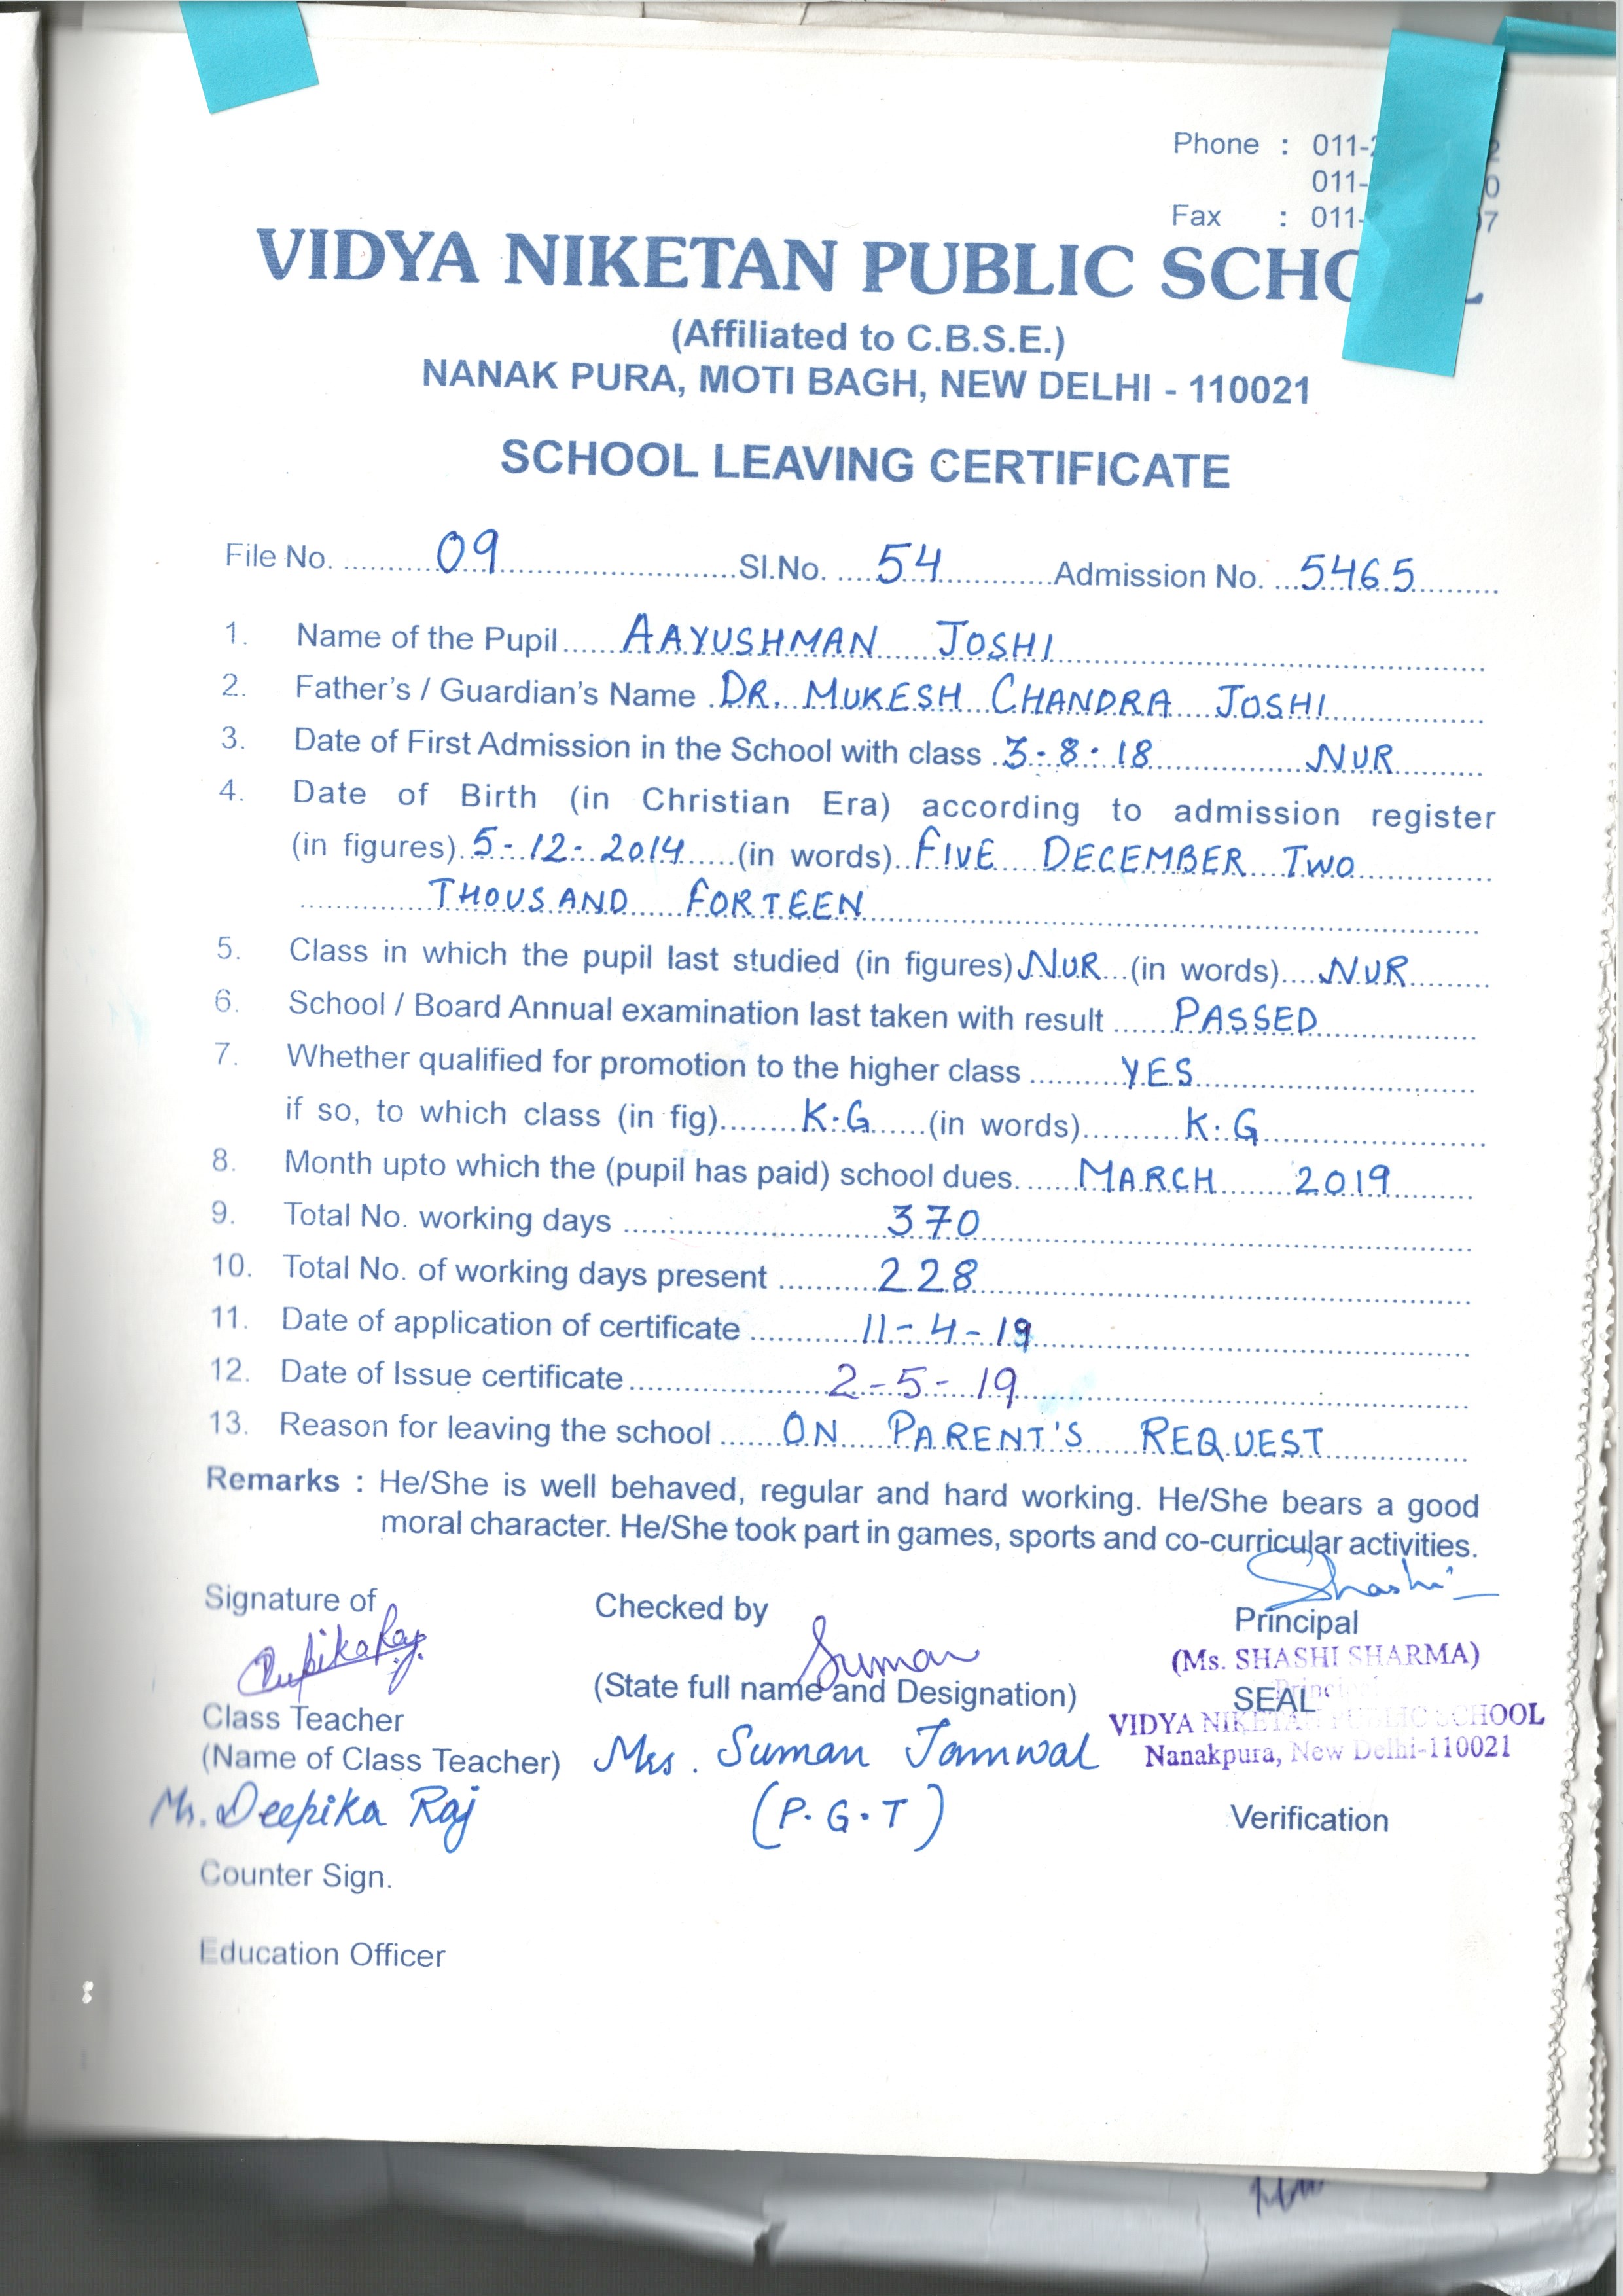 Phone : 011-
011- 0
Fax : 011- 7
VIDYA NIKETAN PUBLIC SCHO L
(Affiliated to C.B.S.E.)
NANAK PURA, MOTI BAGH, NEW DELHI - 110021
SCHOOL LEAVING CERTIFICATE
File No. 09 Sl.No. 54 Admission No. 5465
1. Name of the Pupil AAYUSHMAN JOSHI
2. Father's / Guardian's Name DR. MUKESH CHANDRA JOSHI
3. Date of First Admission in the School with class 3-8-18 NUR
4. Date of Birth (in Christian Era) according to admission register
(in figures) 5-12-2014 (in words) FIVE DECEMBER TWO
THOUSAND FORTEEN
5. Class in which the pupil last studied (in figures) NUR (in words) NUR
6. School / Board Annual examination last taken with result PASSED
7. Whether qualified for promotion to the higher class YES
if so, to which class (in fig) K.G (in words) K.G
8. Month upto which the (pupil has paid) school dues. MARCH 2019
9. Total No. working days 370
10. Total No. of working days present 228
11. Date of application of certificate 11-4-19
12. Date of Issue certificate 2-5-19
13. Reason for leaving the school ON PARENT'S REQUEST
Remarks : He/She is well behaved, regular and hard working. He/She bears a good
moral character. He/She took part in games, sports and co-curricular activities.
Shashi
Signature of Checked by Principal
Deepika Raj Suman (Ms. SHASHI SHARMA)
Principal
(State full name and Designation) SEAL
Class Teacher VIDYA NIKETAN PUBLIC SCHOOL
(Name of Class Teacher) Mrs. Suman Jamwal Nanakpura, New Delhi-110021
Ms. Deepika Raj (P.G.T) Verification
Counter Sign.
Education Officer